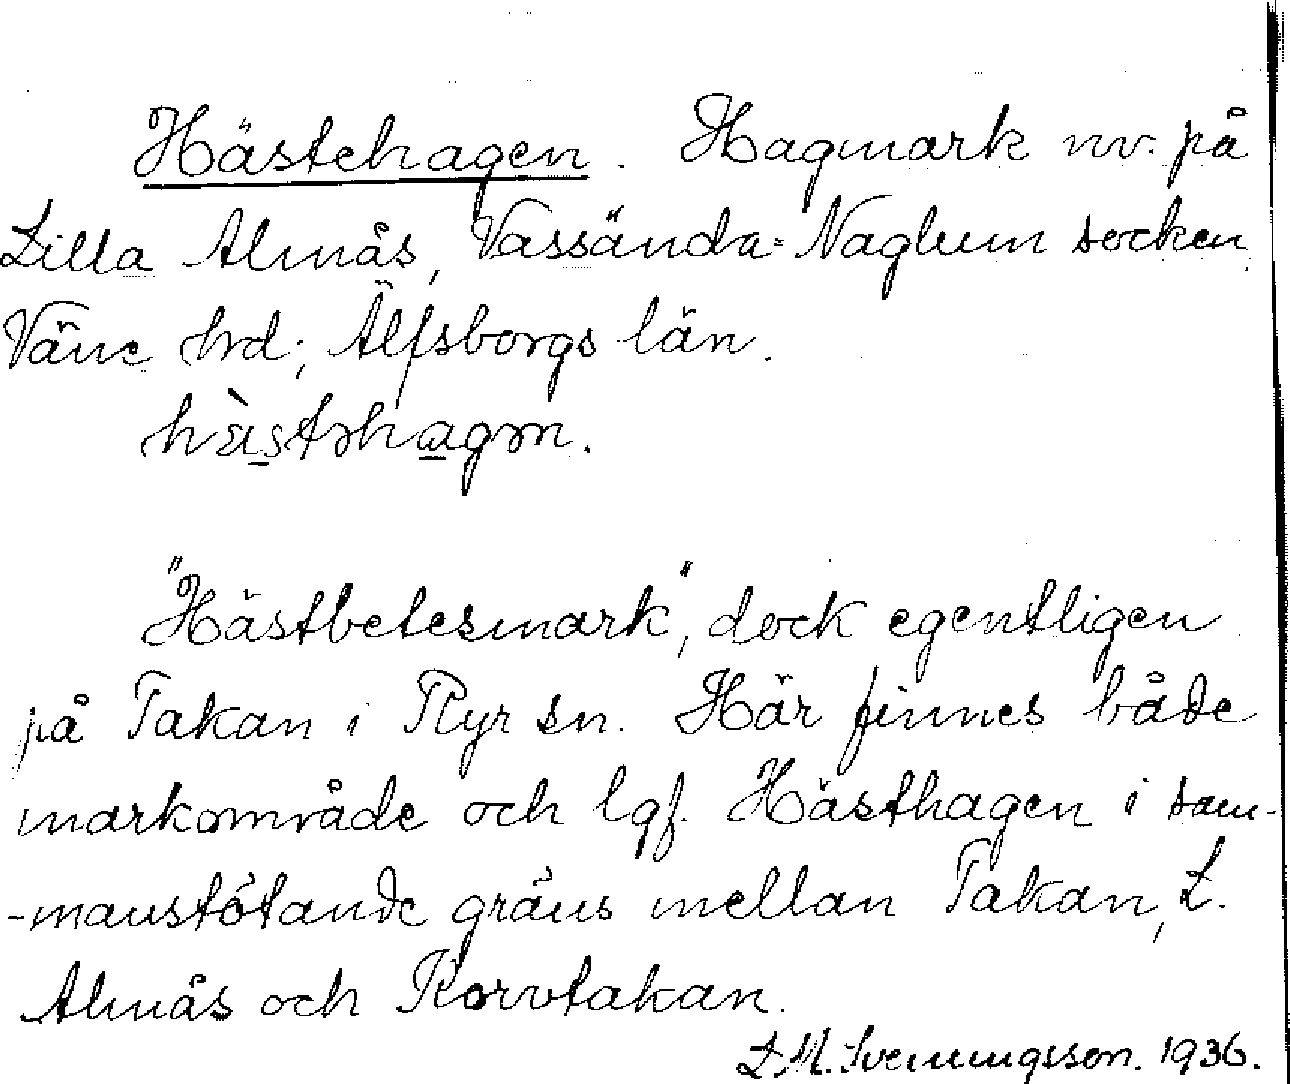 Hästehagen. Hagmark nv. på
Lilla Almås, Vassända-Naglum socken,
Väne hrd; Älfsborgs län.
"Hästbetesmark", dock egentligen
på Takan i Ryr sn. Här finnes både
markområde och lgf. Hästhagen i sam-
-manstötande gräns mellan Takan, L.
Almås och Korvtakan.
L.M. Svenungsson. 1936.